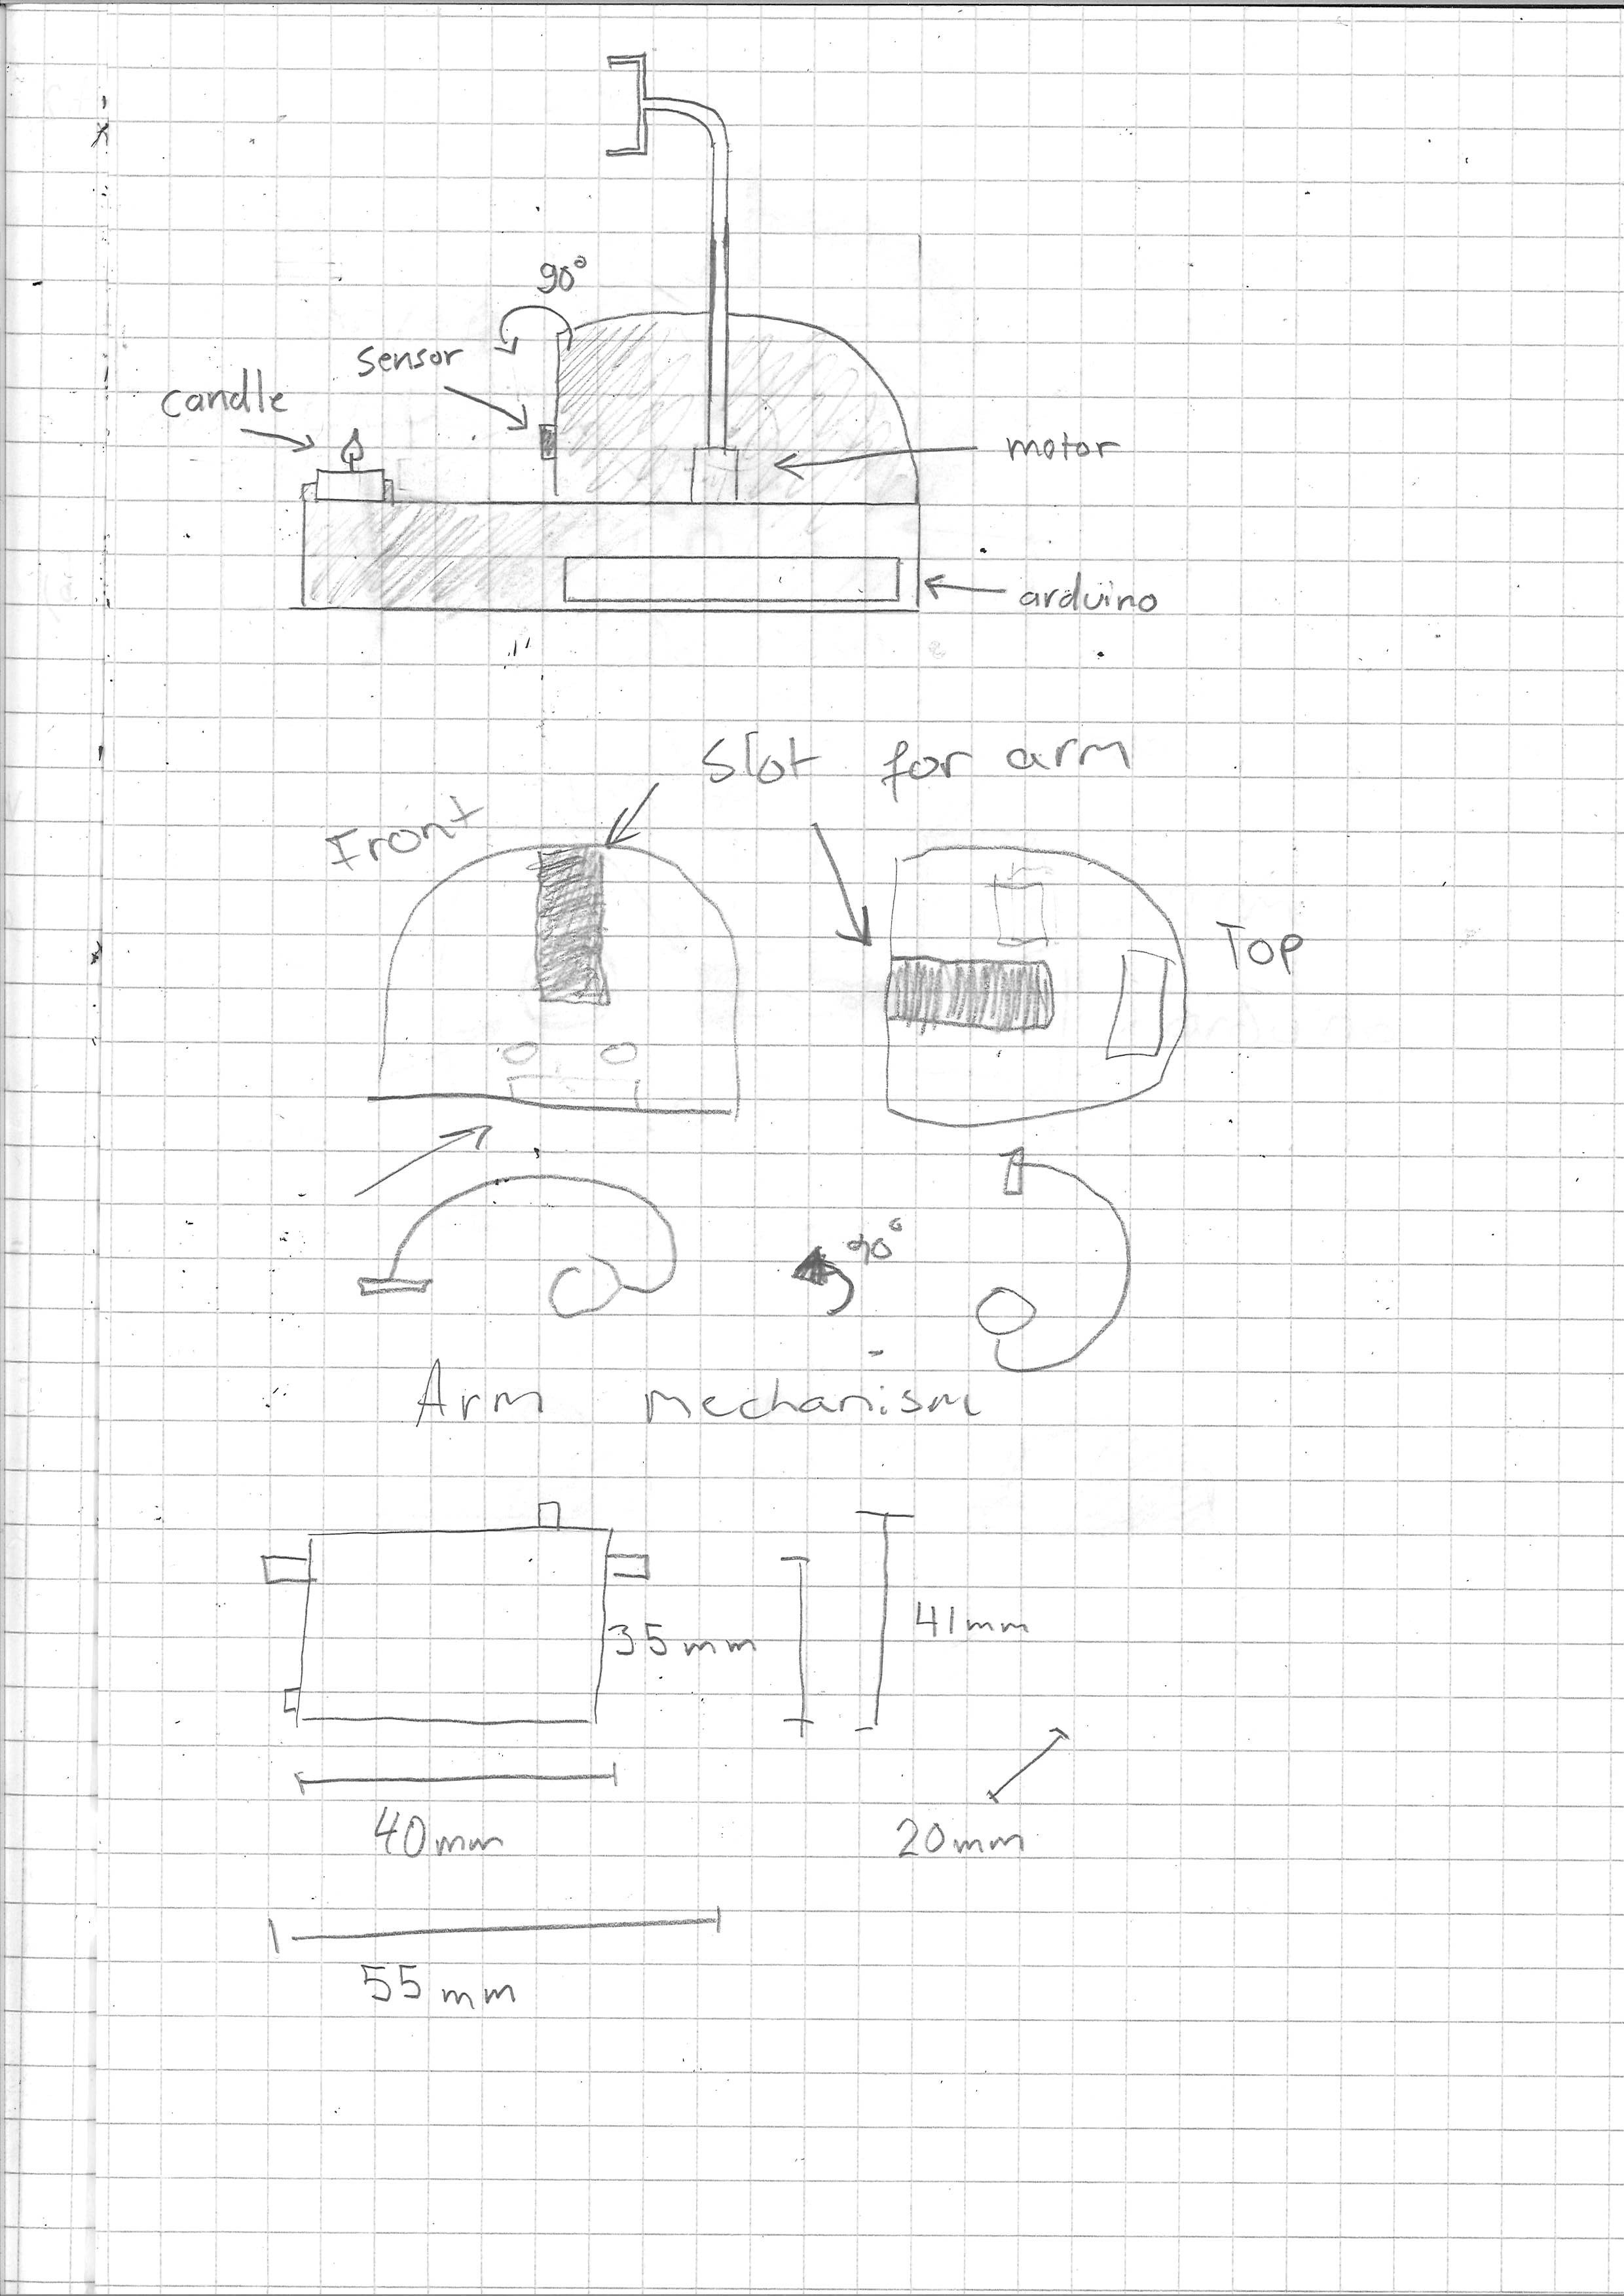 90°
sensor
candle
motor
arduino
Slot for arm
Front
Top
90°
Arm mechanism
35mm
41mm
40mm
20mm
55mm